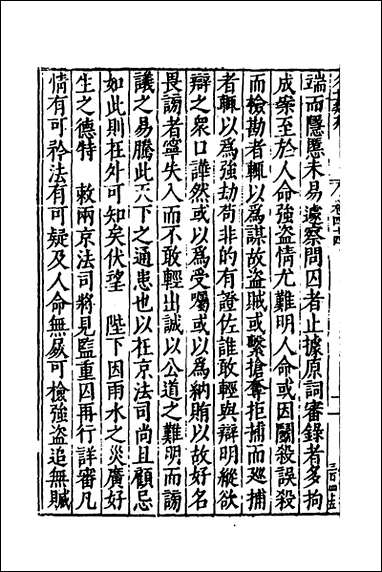 端而隱慝未易遽察問囚者止據原詞審錄者多拘
成案至於人命強盜情尤難明人命或因鬭殺誤殺
而檢勘者輒以為謀故盜賊或繫搶奪拒捕而巡捕
者輒以為強劫苟非的有證佐誰敢輕與辯明縱欲
辯之衆口譁然或以為受囑或以為納賄以故好名
畏謗者寧失入而不敢輕出誠以公道之難明而謗
議之易騰此天下之通患也以在京法司尚且顧忌
如此則在外可知矣伏望　陛下因雨水之災廣好
生之德特　敕兩京法司將見監重囚再行詳審凡
情有可矜法有可疑及人命無屍可檢強盜追無贓